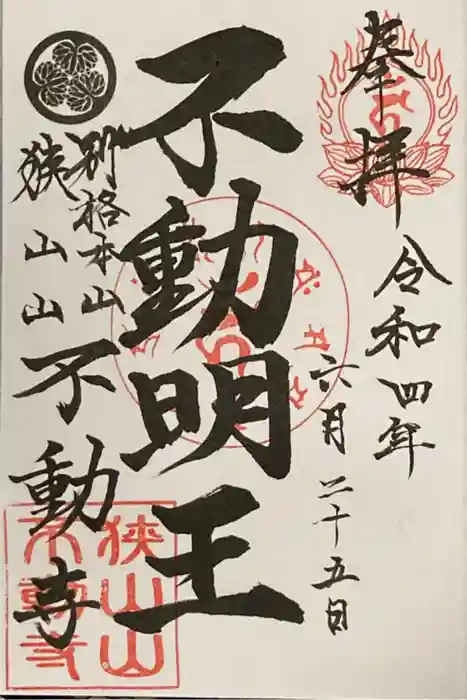 奉拝
令和四年
六月二十五日
不動明王
別格本山
狭山山
不動寺
狭山山
不動寺